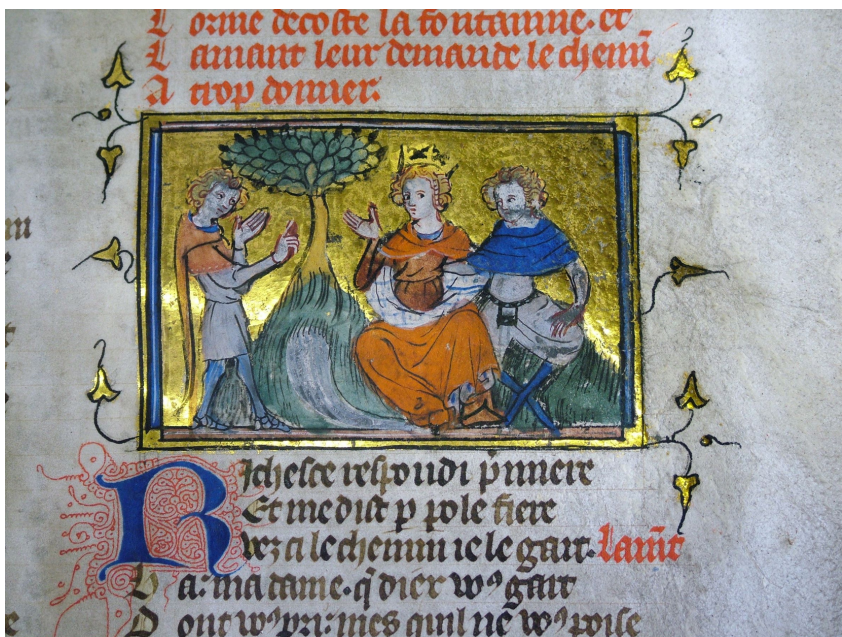 L orme decoste la fontainne. et
L amant leur demande le chemĩ
A trop donner.
Richesce respondi p̃miere
Et me dist p pole fiere
Vez ci le chemin ie le gart. Lam̃t
D a. ma dame. q̃ dieꝛ wꝰ gart
D ont wꝰ pri. mes quil ne wꝰ poise